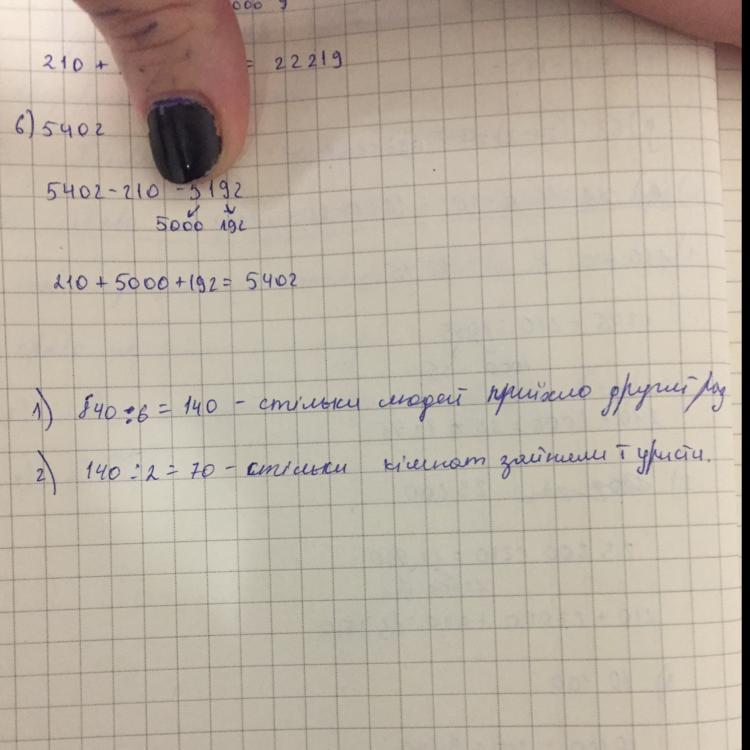 000 9
210 + = 22219
6) 5402
5402-210 - 5192
5000 192
210 + 5000 + 192 = 5402
1) 840 ÷ 6 = 140 - стільки людей приїхло другий раз
2) 140 ÷ 2 = 70 - стільки кімнат зайняли туристи.